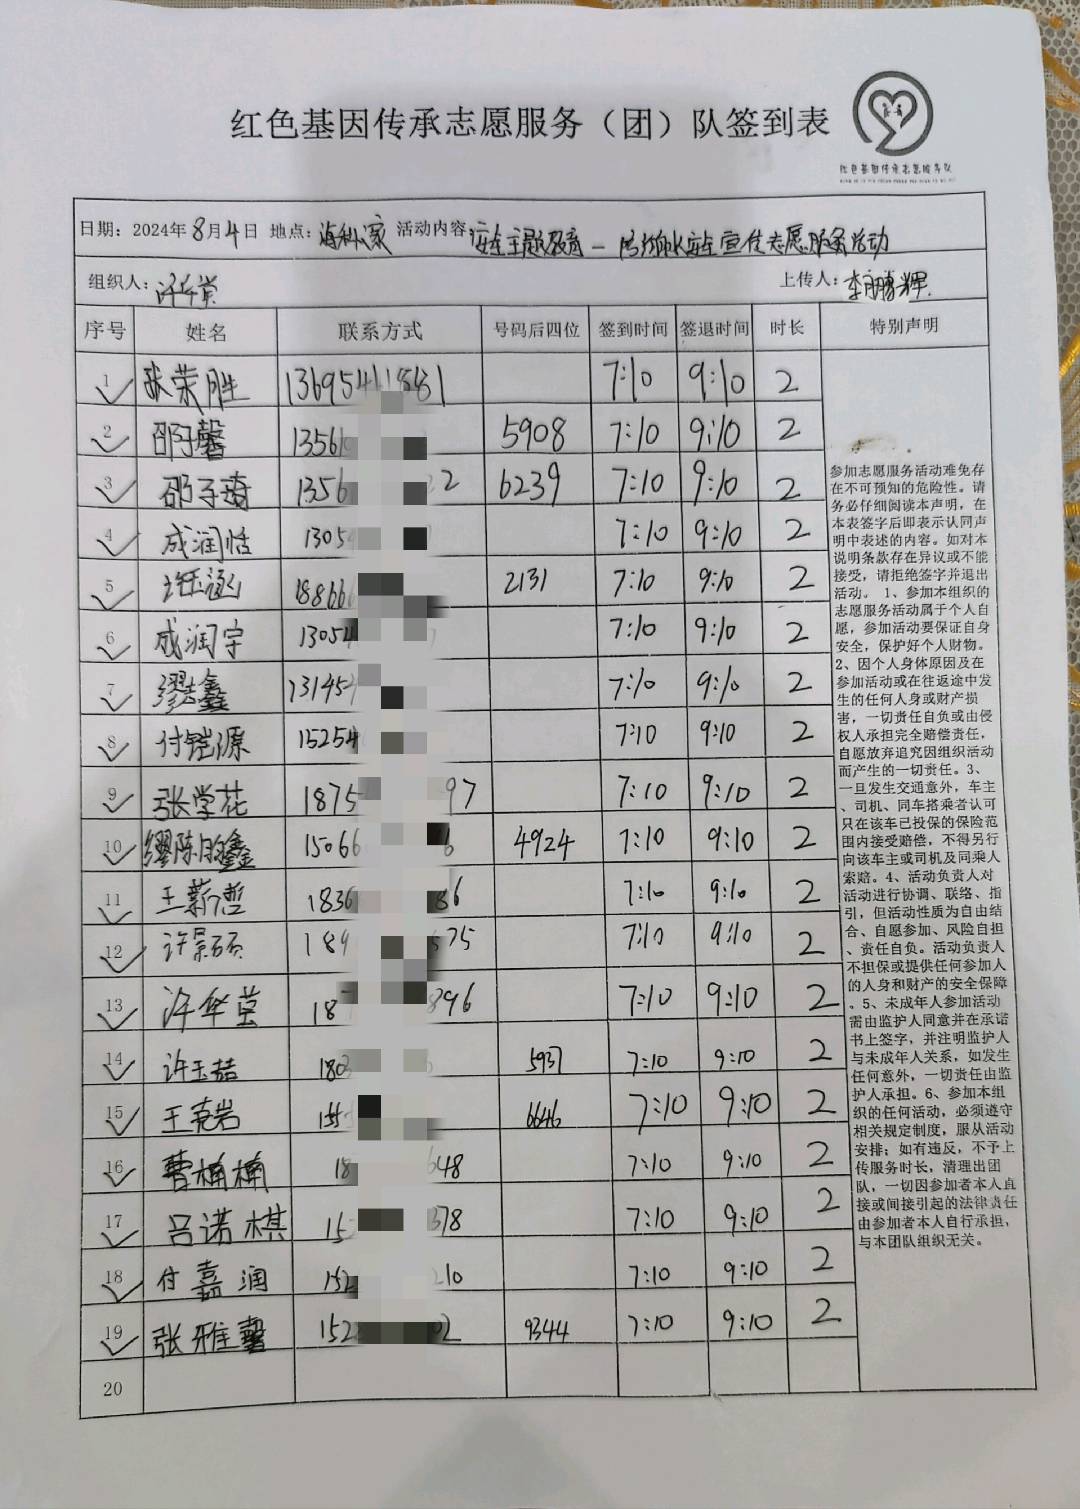 红色基因传承志愿服务（团）队签到表
红色基因传承志愿服务队
日期：2024年8月4日 地点： 活动内容：安全主题教育一防溺水安全宣传志愿服务活动
组织人：许华堂 上传人：李鹏辉
序号 姓名 联系方式 号码后四位 签到时间 签退时间 时长 特别声明
1 张荣胜 7:10 9:10 2
2 邵子馨 13561 5908 7:10 9:10 2
3 邵子琦 1356 22 6239 7:10 9:10 2
4 成润恬 1305 7:10 9:10 2
5 许珏涵 18866 2131 7:10 9:10 2
6 成润宇 13054 7:10 9:10 2
7 缪鑫 131454 7:10 9:10 2
8 付铠源 15254 7:10 9:10 2
9 张学花 1875 97 7:10 9:10 2
10 缪陈鑫 15066 6 4924 7:10 9:10 2
11 王薪哲 1836 86 7:10 9:10 2
12 许景硕 189 575 7:10 9:10 2
13 许华堂 187 896 7:10 9:10 2
14 许玉喆 180 5937 7:10 9:10 2
15 王尧岩 155 6646 7:10 9:10 2
16 曹楠楠 18 648 7:10 9:10 2
17 吕诺棋 15 378 7:10 9:10 2
18 付嘉润 152 210 7:10 9:10 2
19 张雅馨 152 02 9344 7:10 9:10 2
20
参加志愿服务活动难免存
在不可预知的危险性。请
务必仔细阅读本声明，在
本表签字后即表示认同声
明中表述的内容。如对本
说明条款存在异议或不能
接受，请拒绝签字并退出
活动。 1、参加本组织的
志愿服务活动属于个人自
愿，参加活动要保证自身
安全，保护好个人财物。
2、因个人身体原因及在
参加活动或在往返途中发
生的任何人身或财产损
害，一切责任自负或由侵
权人承担完全赔偿责任，
自愿放弃追究因组织活动
而产生的一切责任。3、
一旦发生交通意外，车主
、司机、同车搭乘者认可
只在该车已投保的保险范
围内接受赔偿，不得另行
向该车主或司机及同乘人
索赔。4、活动负责人对
活动进行协调、联络、指
引，但活动性质为自由结
合、自愿参加、风险自担
、责任自负。活动负责人
不担保或提供任何参加人
的人身和财产的安全保障
。5、未成年人参加活动
需由监护人同意并在承诺
书上签字，并注明监护人
与未成年人关系，如发生
任何意外，一切责任由监
护人承担。6、参加本组
织的任何活动，必须遵守
相关规定制度，服从活动
安排；如有违反，不予上
传服务时长，清理出团
队，一切因参加者本人直
接或间接引起的法律责任
由参加者本人自行承担，
与本团队组织无关。